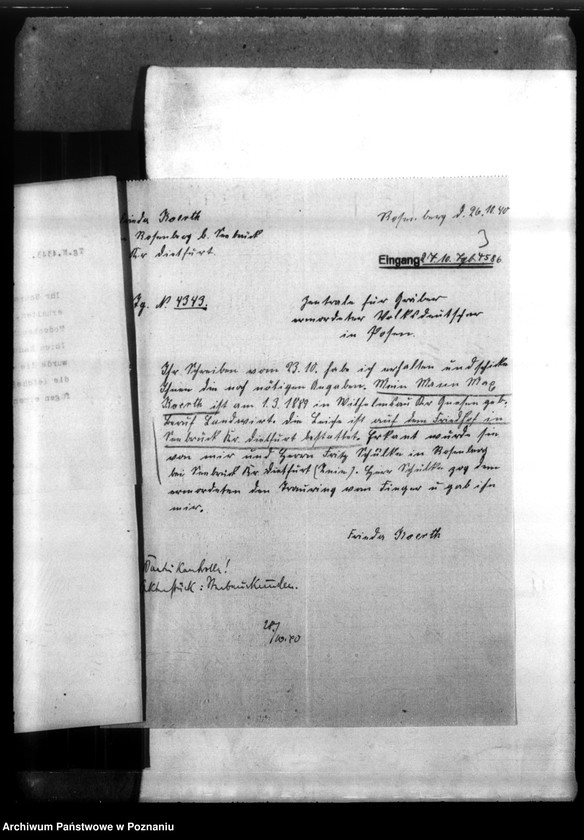 Frieda Koerth
Rosenberg b. Seebrück
Kr Dietfurt.
Rosenberg d. 26.10.40
3
Eingang 27. 10. Tgb. 4586
Tg. N. 4343.
Zentrale für Gräber
ermordeter Volksdeutscher
in Posen.
Ihr Schreiben vom 23.10. habe ich erhalten und schicke
Ihnen die noch nötigen Angaben. Mein Mann Max
Koerth ist am 1.3.1889 in Wilhelmsau Kr Gnesen geb.
Beruf Landwirt. Die Leiche ist auf dem Friedhof in
Seebrück Kr. Dietfurt bestattet. Erkant wurde sie
von mir und Herrn Fritz Schülke in Rosenberg
bei Seebrück Kr. Dietfurt (Znin). Herr Schülke zog dem
ermordeten den Trauring vom Finger u gab ihn
mir.
Frieda Koerth
28./10.40
Tg.N.4343.
Archiwum Państwowe w Poznaniu